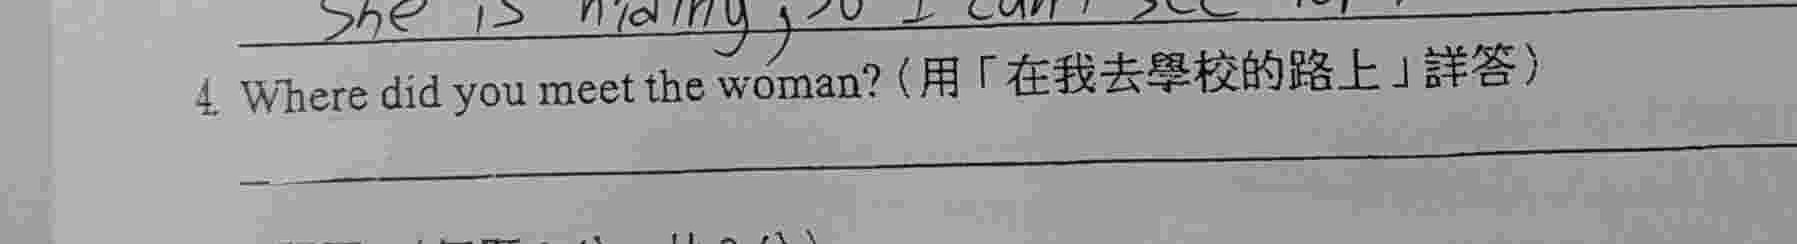 She is hiding, so I can't see
4. Where did you meet the woman?(用「在我去學校的路上」詳答)